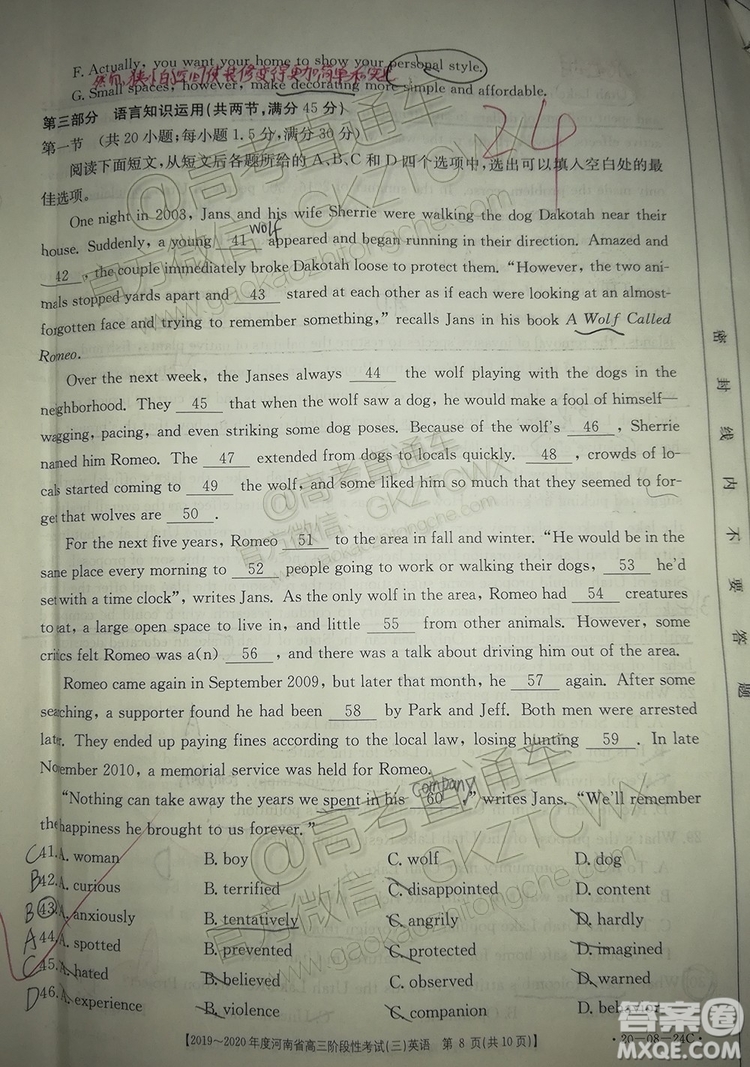 F. Actually, you want your home to show your personal style.
G. Small spaces, however, make decorating more simple and affordable.
第三部分 语言知识运用(共两节,满分 45 分)
24
第一节 (共 20 小题;每小题 1.5 分,满分 30 分)
阅读下面短文,从短文后各题所给的 A、B、C 和 D 四个选项中,选出可以填入空白处的最
佳选项。
One night in 2003, Jans and his wife Sherrie were walking the dog Dakotah near their
wolf
house. Suddenly, a young 41 appeared and began running in their direction. Amazed and
42 , the couple immediately broke Dakotah loose to protect them. "However, the two ani-
mals stopped yards apart and 43 stared at each other as if each were looking at an almost-
forgotten face and trying to remember something," recalls Jans in his book A Wolf Called
Romeo.
Over the next week, the Janses always 44 the wolf playing with the dogs in the
neighborhood. They 45 that when the wolf saw a dog, he would make a fool of himself—
wagging, pacing, and even striking some dog poses. Because of the wolf's 46 , Sherrie
named him Romeo. The 47 extended from dogs to locals quickly. 48 , crowds of lo-
cals started coming to 49 the wolf, and some liked him so much that they seemed to for-
get that wolves are 50 .
For the next five years, Romeo 51 to the area in fall and winter. "He would be in the
same place every morning to 52 people going to work or walking their dogs, 53 he'd
set with a time clock", writes Jans. As the only wolf in the area, Romeo had 54 creatures
to eat, a large open space to live in, and little 55 from other animals. However, some
critics felt Romeo was a(n) 56 , and started a talk about driving him out of the area.
Romeo came again in September 2009, but later that month, he 57 again. After some
searching, a supporter found he had been 58 by Park and Jeff. Both men were arrested
later. They ended up paying fines according to the local law, losing hunting 59 . In late
November 2010, a memorial service was held for Romeo.
company
"Nothing can take away the years we spent in his 60 ," writes Jans. "We'll remember
the happiness he brought to us forever."
C 41. A. woman B. boy C. wolf D. dog
B 42. A. curious B. terrified C. disappointed D. content
B 43. A. anxiously B. tentatively C. angrily D. hardly
A 44. A. spotted B. prevented C. protected D. imagined
C 45. A. hated B. believed C. observed D. warned
D 46. A. experience B. violence C. companion D. behavior
【2019~2020 年度河南省高三阶段性考试(三)英语 第 8 页(共 10 页)】
·20-08-24C·
密封线内不要答题
@高考直通车
官方微信:GKZTCWX
www.gaokaozhitongche.com
@高考直通车
官方微信:GKZTCWX
www.gaokaozhitongche.com
@高考直通车
官方微信:GKZTCWX
www.gaokaozhitongche.com
答案圈
MXQE.COM